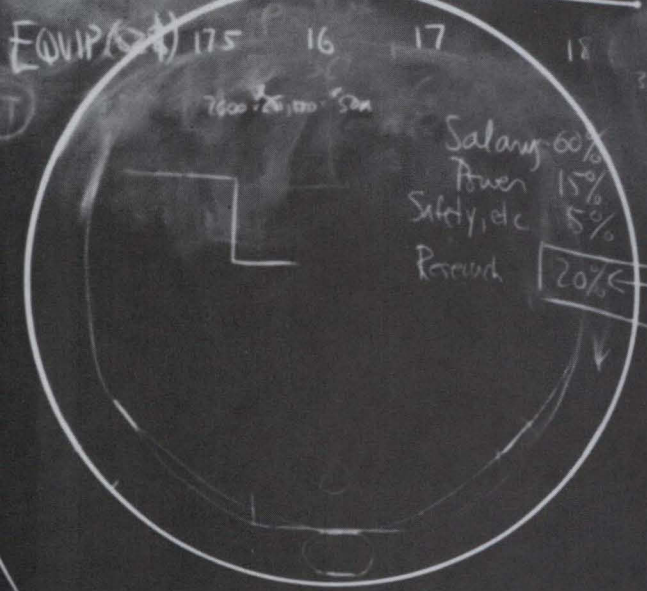 EQUIP 17.5 16 17 18
Salary 60%
Power 15%
Safety, etc 5%
Research 20%